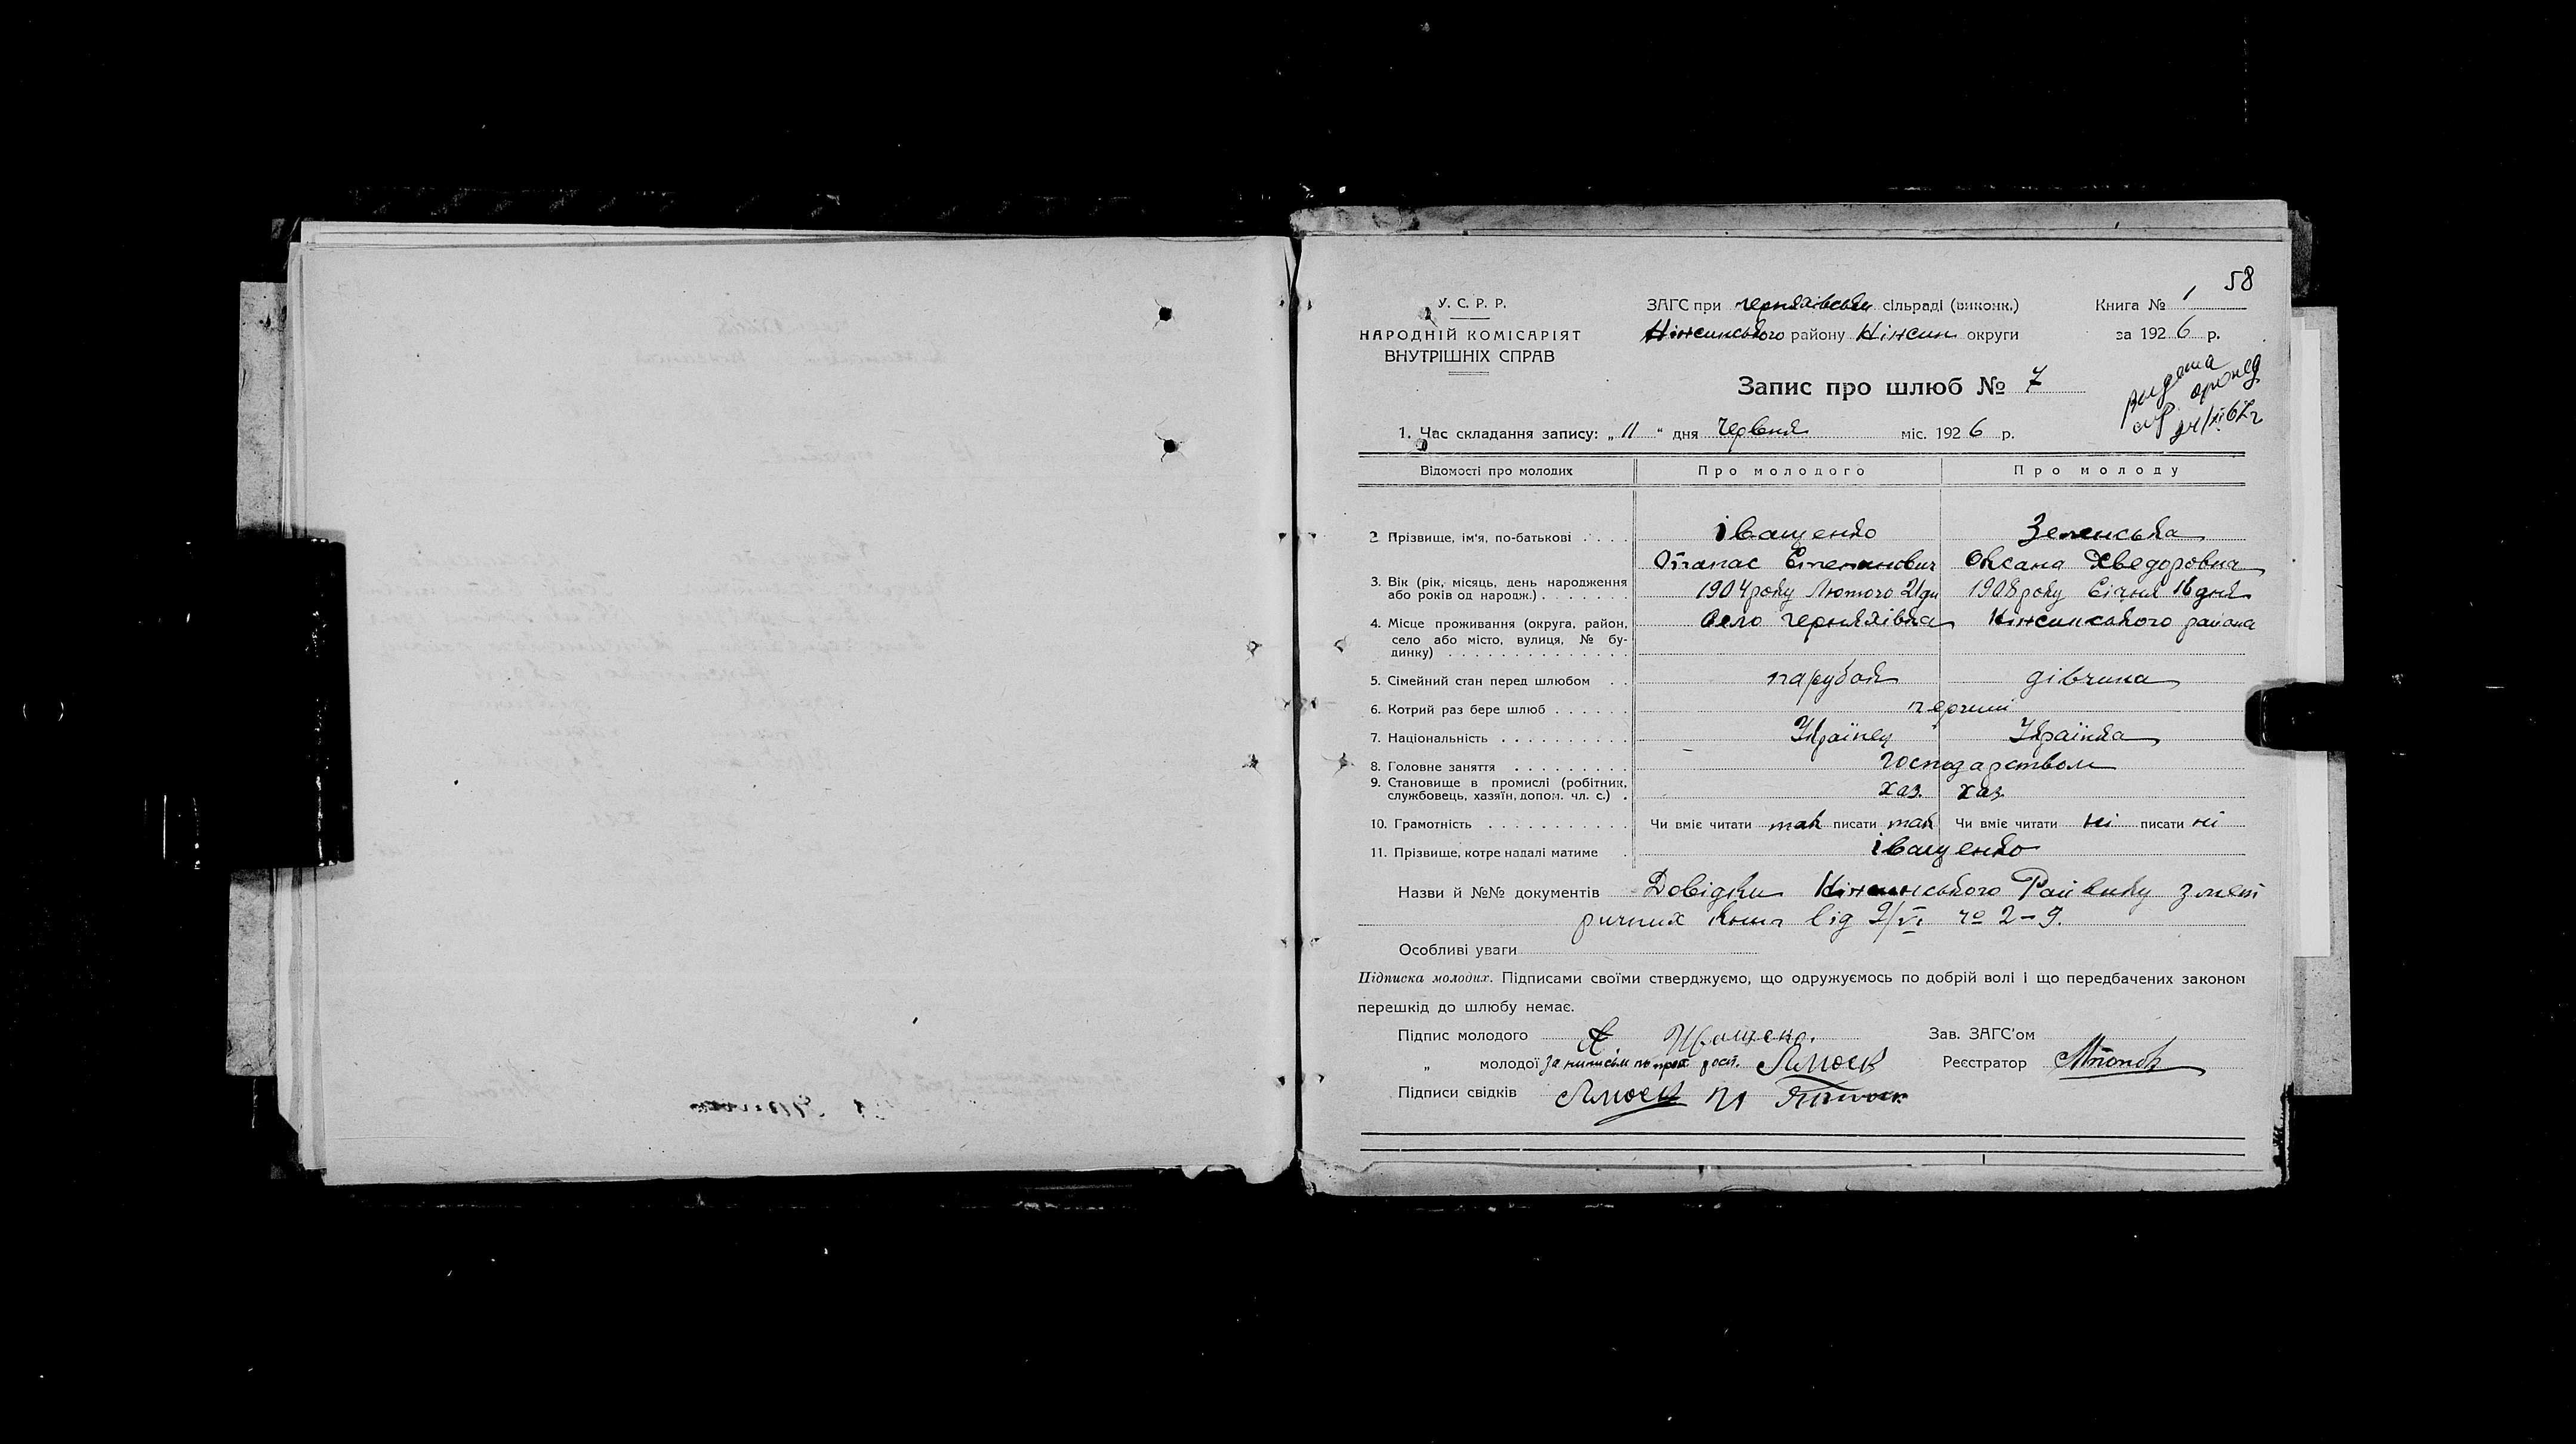 58
У. С. Р. Р.
НАРОДНІЙ КОМІСАРІЯТ
ВНУТРІШНІХ СПРАВ
ЗАГС при Черняхівськи сільраді (виконк.)
Ніжинського району Ніжин округи
Книга № 1
за 1926 р.
Запис про шлюб № 7
видана
1. Час складання запису: „ 11 “ дня Червня міс. 1926 р.
Відомості про молодих Про молодого Про молоду
2 Прізвище, ім'я, по-батькові . . . . Іващенко Зеленська
Опанас Степанович Оксана Хведоровна
3. Вік (рік, місяць, день народження
або років од народж.) . . . . . . . 1904 року Лютого 21 дн 1908 року Січня 16 дня
4. Місце проживання (округа, район,
село або місто, вулиця, № бу-
динку) . . . . . . . . . . . . . . Село Черняхівка Ніжинського района
5. Сімейний стан перед шлюбом . . парубок дівчина
6. Котрий раз бере шлюб . . . . . . перший
7. Національність . . . . . . . . . . Українец Українка
8. Головне заняття . . . . . . . . . Господарством
9. Становище в промислі (робітник,
службовець, хазяїн, допом. чл. с.) . хаз. хаз.
10. Грамотність . . . . . . . . . . . Чи вміє читати так писати так Чи вміє читати ні писати ні
11. Прізвище, котре надалі матиме . Іващенко
Назви й №№ документів Довідки Ніжинського Райвику з мет
ричних книг від 9/VI № 2-9.
Особливі уваги
Підписка молодих. Підписами своїми стверджуємо, що одружуємось по добрій волі і що передбачених законом
перешкід до шлюбу немає.
Підпис молодого Зав. ЗАГС'ом
„ молодої Реєстратор
Підписи свідків